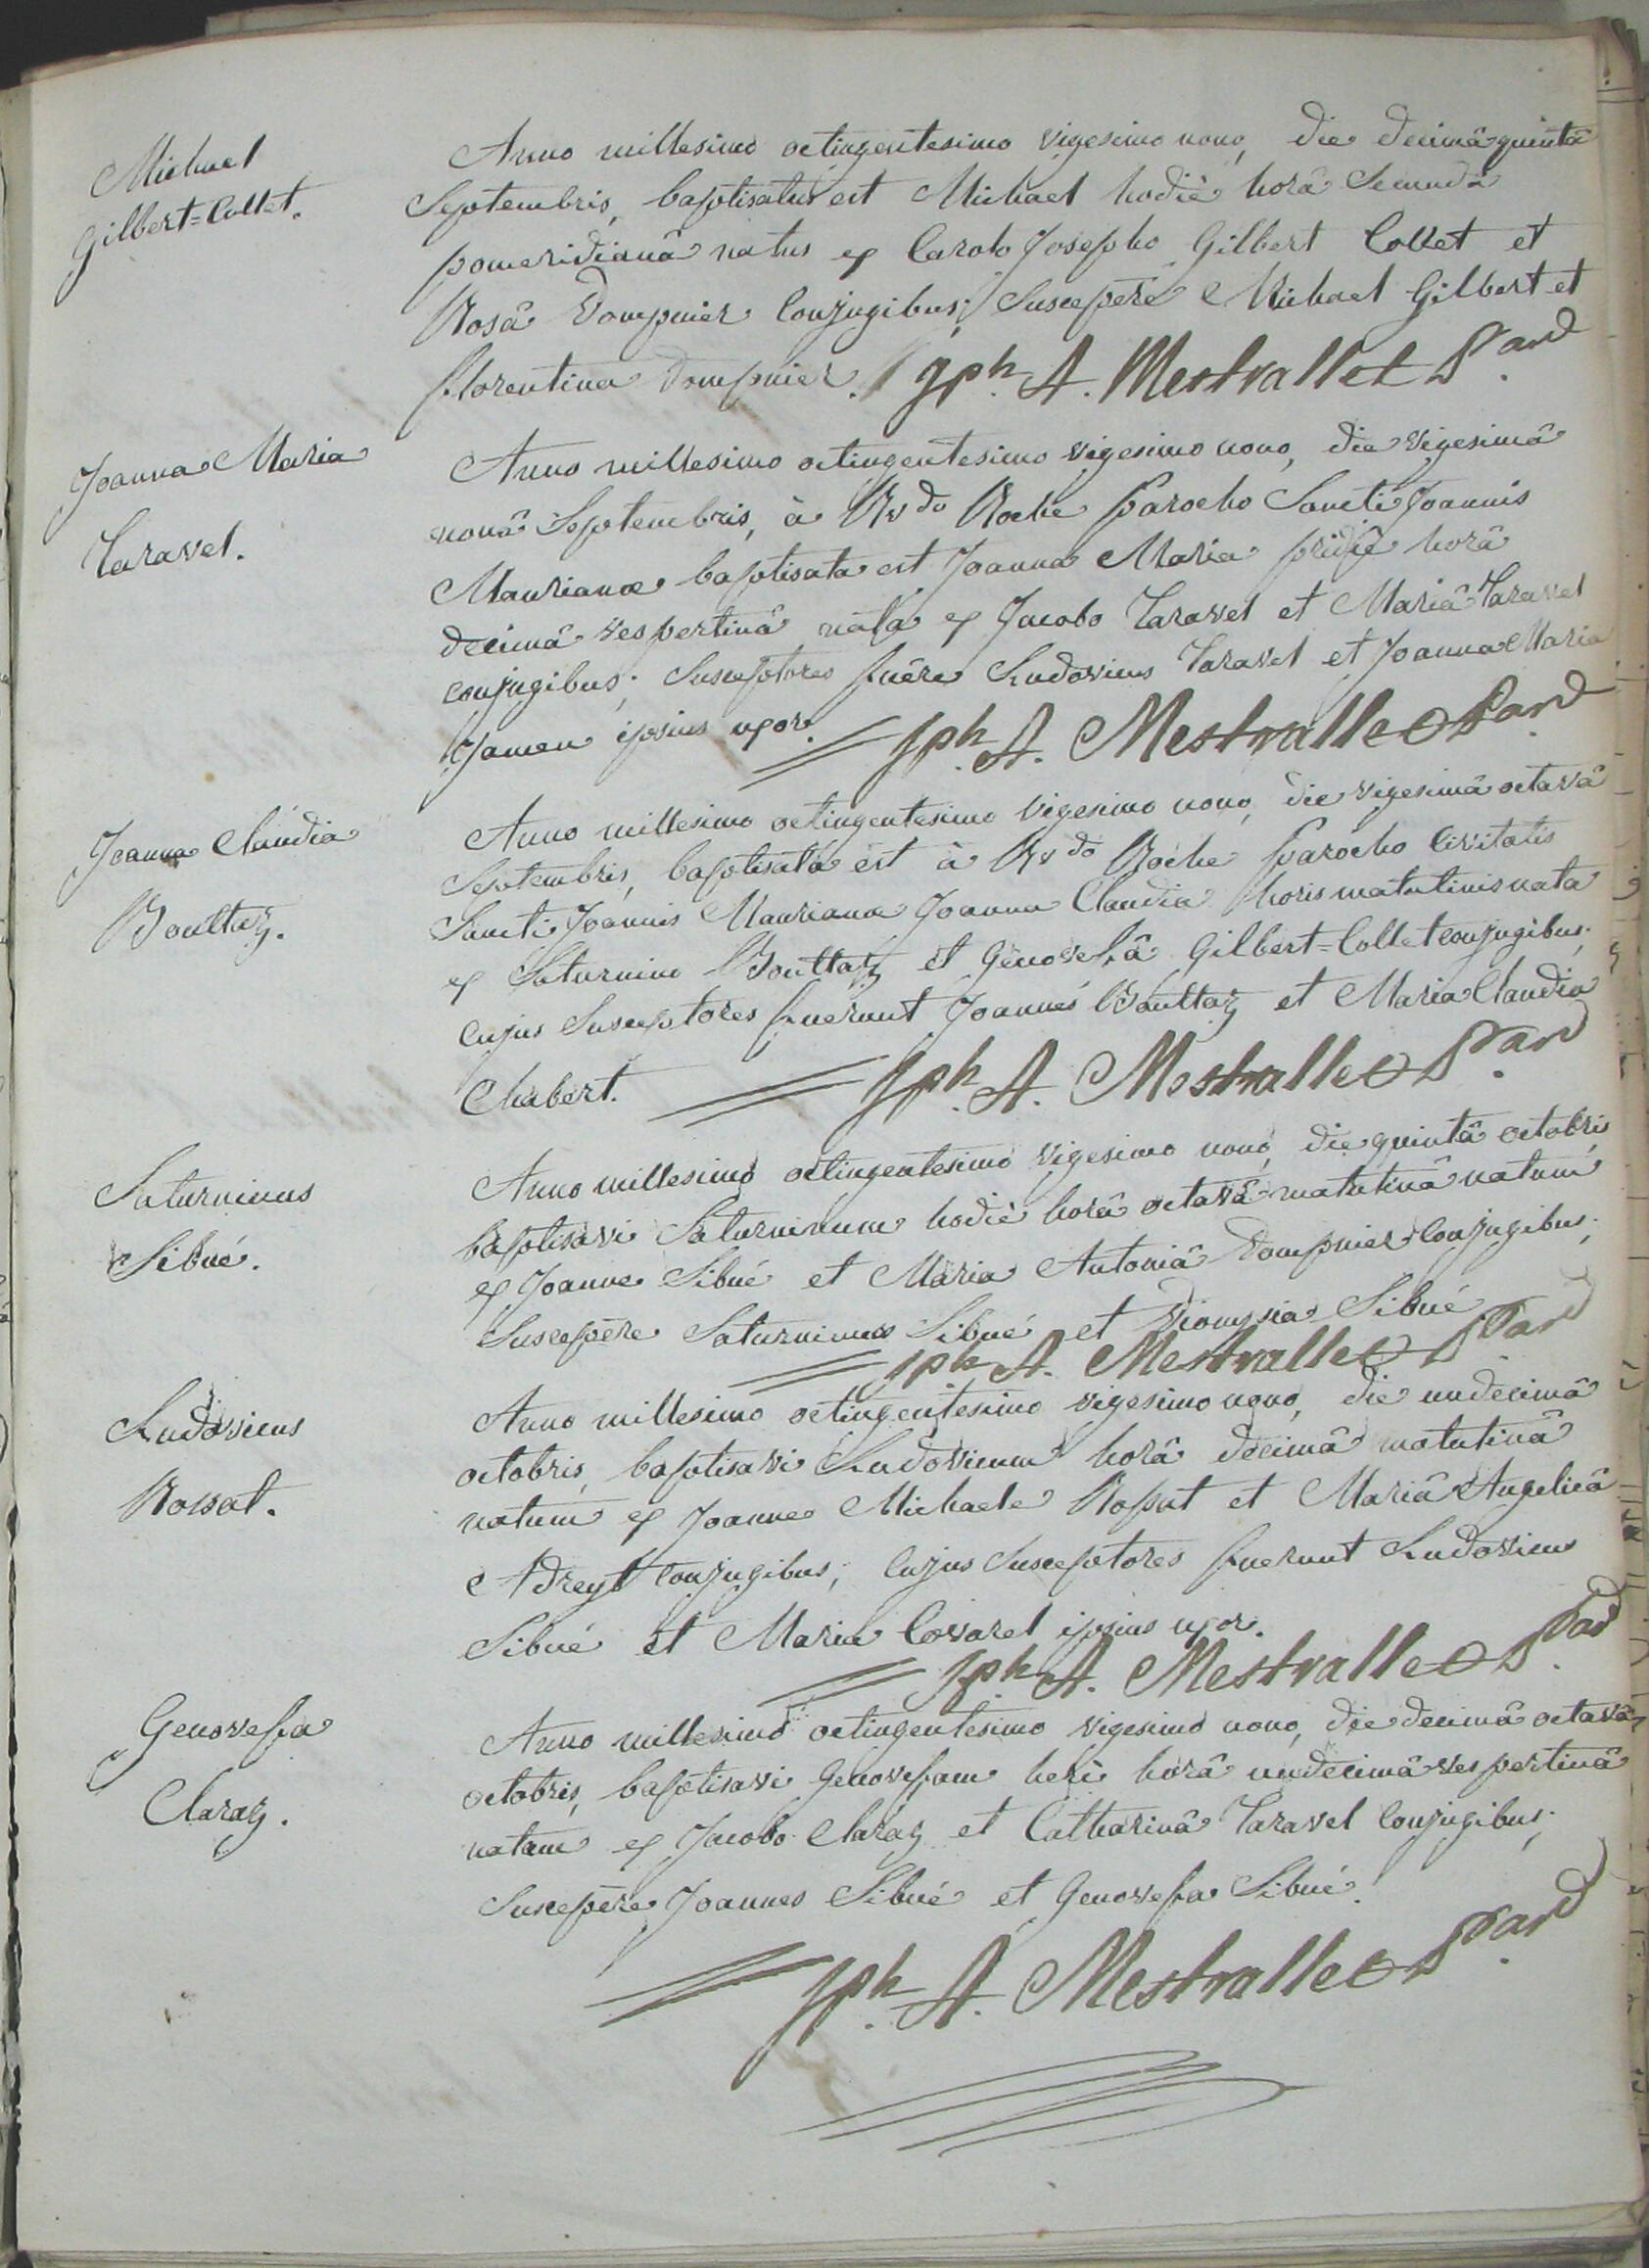 Michael
Gilbert=Collet.
Anno millesimo octingentesimo vigesimo nono, die decimâ quintâ
Septembris, baptisatus est Michael hodiè horâ Secundâ
pomeridianâ natus ex Carolo Josepho Gilbert Collet et
Rosâ Dompnier Conjugibus; Suscepêre Michael Gilbert et
florentina Dompnier. Jph. A. Mestrallet
Joanna Maria
Taravel.
Anno millesimo octingentesimo vigesimo nono, die vigesimâ
nonâ Septembris, à Rvdo Roche Parocho Sancti Joannis
Maurianæ baptisata est Joanna Maria pridiè horâ
decimâ vespertinâ nata ex Jacobo Taravel et Mariâ Taravel
conjugibus; Susceptores fuêre Ludovicus Taravel et Joanna Maria
Jamen ipsius uxor. Jph. A. Mestrallet
Joanna Claudia
Boultaz.
Anno millesimo octingentesimo vigesimo nono, die vigesimâ octavâ
Septembris, baptisata est à Rvdo Roche Parocho Civitatis
Sancti Joannis Maurianæ Joanna Claudia horis matutinis nata
ex Saturnino Boultaz et Genovefâ Gilbert=Collet conjugibus;
Cujus Susceptores fuerunt Joannes Boultaz et Maria Claudia
Chabert. Jph. A. Mestrallet
Saturninus
Sibué.
Anno millesimo octingentesimo vigesimo nono, die quintâ octobris
baptisavi Saturninum hodiè horâ octavâ matutinâ natum
ex Joanne Sibué et Maria Antoniâ Dompnier Conjugibus;
Suscepêre Saturninus Sibué et Dionysia Sibué
Jph. A. Mestrallet
Ludovicus
Rossat.
Anno millesimo octingentesimo vigesimo nono, die undecimâ
octobris, baptisavi Ludovicum horâ decimâ matutinâ
natum ex Joanne Michaele Rossat et Mariâ Angelicâ
Adreyt Conjugibus; Cujus Susceptores fuerunt Ludovicus
Sibué et Maria Covarel ipsius uxor.
Jph. A. Mestrallet
Genovefa
Claraz.
Anno millesimo octingentesimo vigesimo nono, die decimâ octavâ
octobris, baptisavi Genovefam heri horâ undecimâ vespertinâ
natam ex Jacobo Claraz et Catharinâ Taravel Conjugibus;
Suscepêre Joannes Sibué et Genovefa Sibué.
Jph. A. Mestrallet